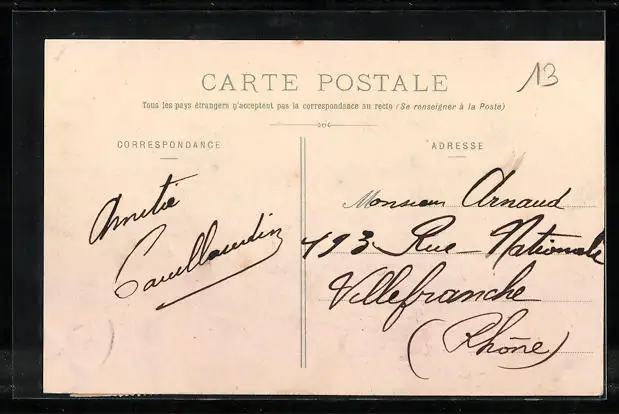 13
CARTE POSTALE
Tous les pays étrangers n'acceptent pas la correspondance au recto (Se renseigner à la Poste)
CORRESPONDANCE
ADRESSE
Amitié
Monsieur Arnaud
493 Rue Nationale
Villefranche
(Rhône)